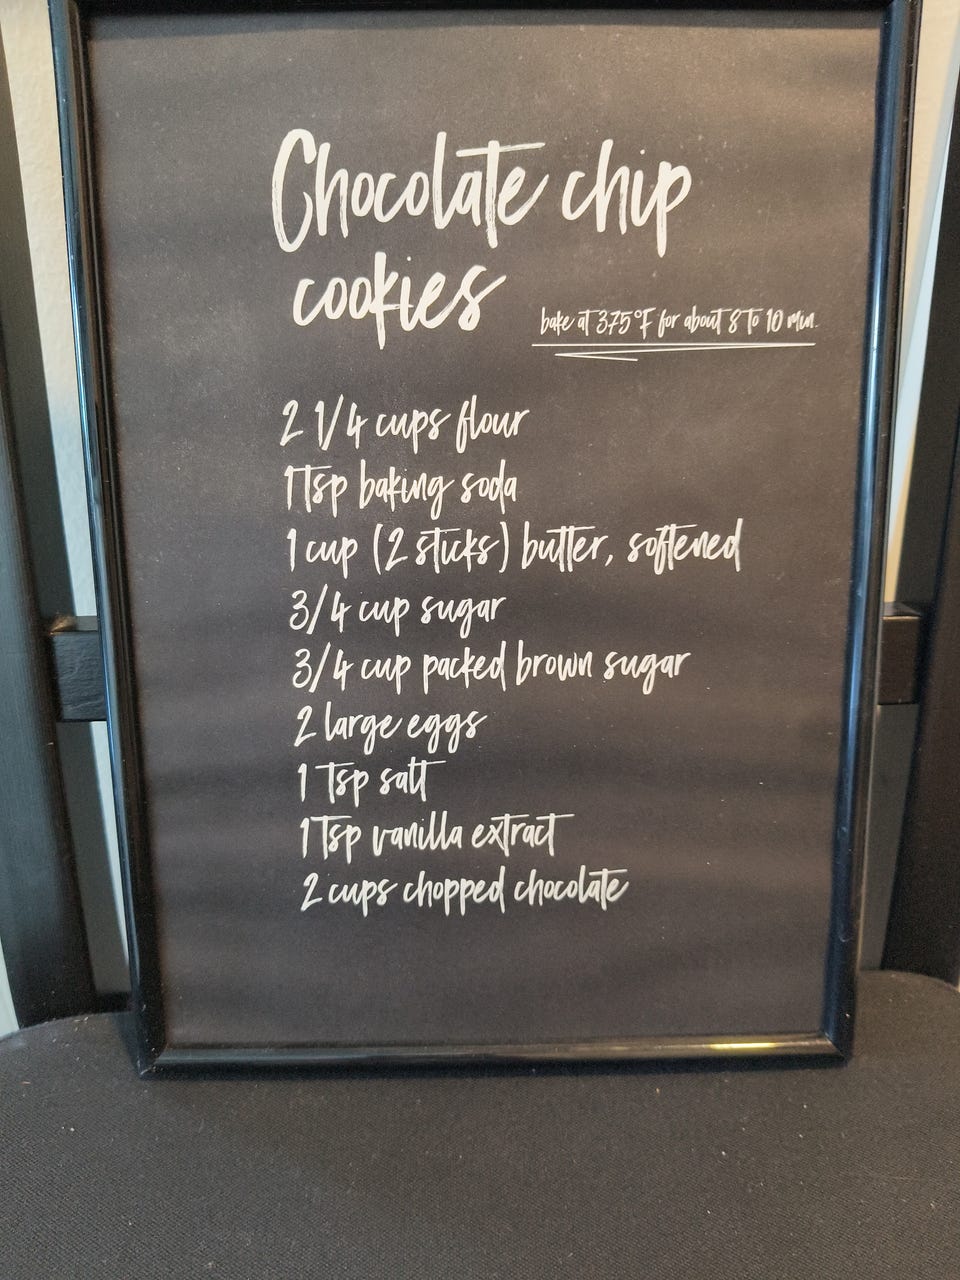 Chocolate chip
cookies
bake at 375°F for about 8 to 10 min.
2 1/4 cups flour
1 tsp baking soda
1 cup (2 sticks) butter, softened
3/4 cup sugar
3/4 cup packed brown sugar
2 large eggs
1 tsp salt
1 tsp vanilla extract
2 cups chopped chocolate